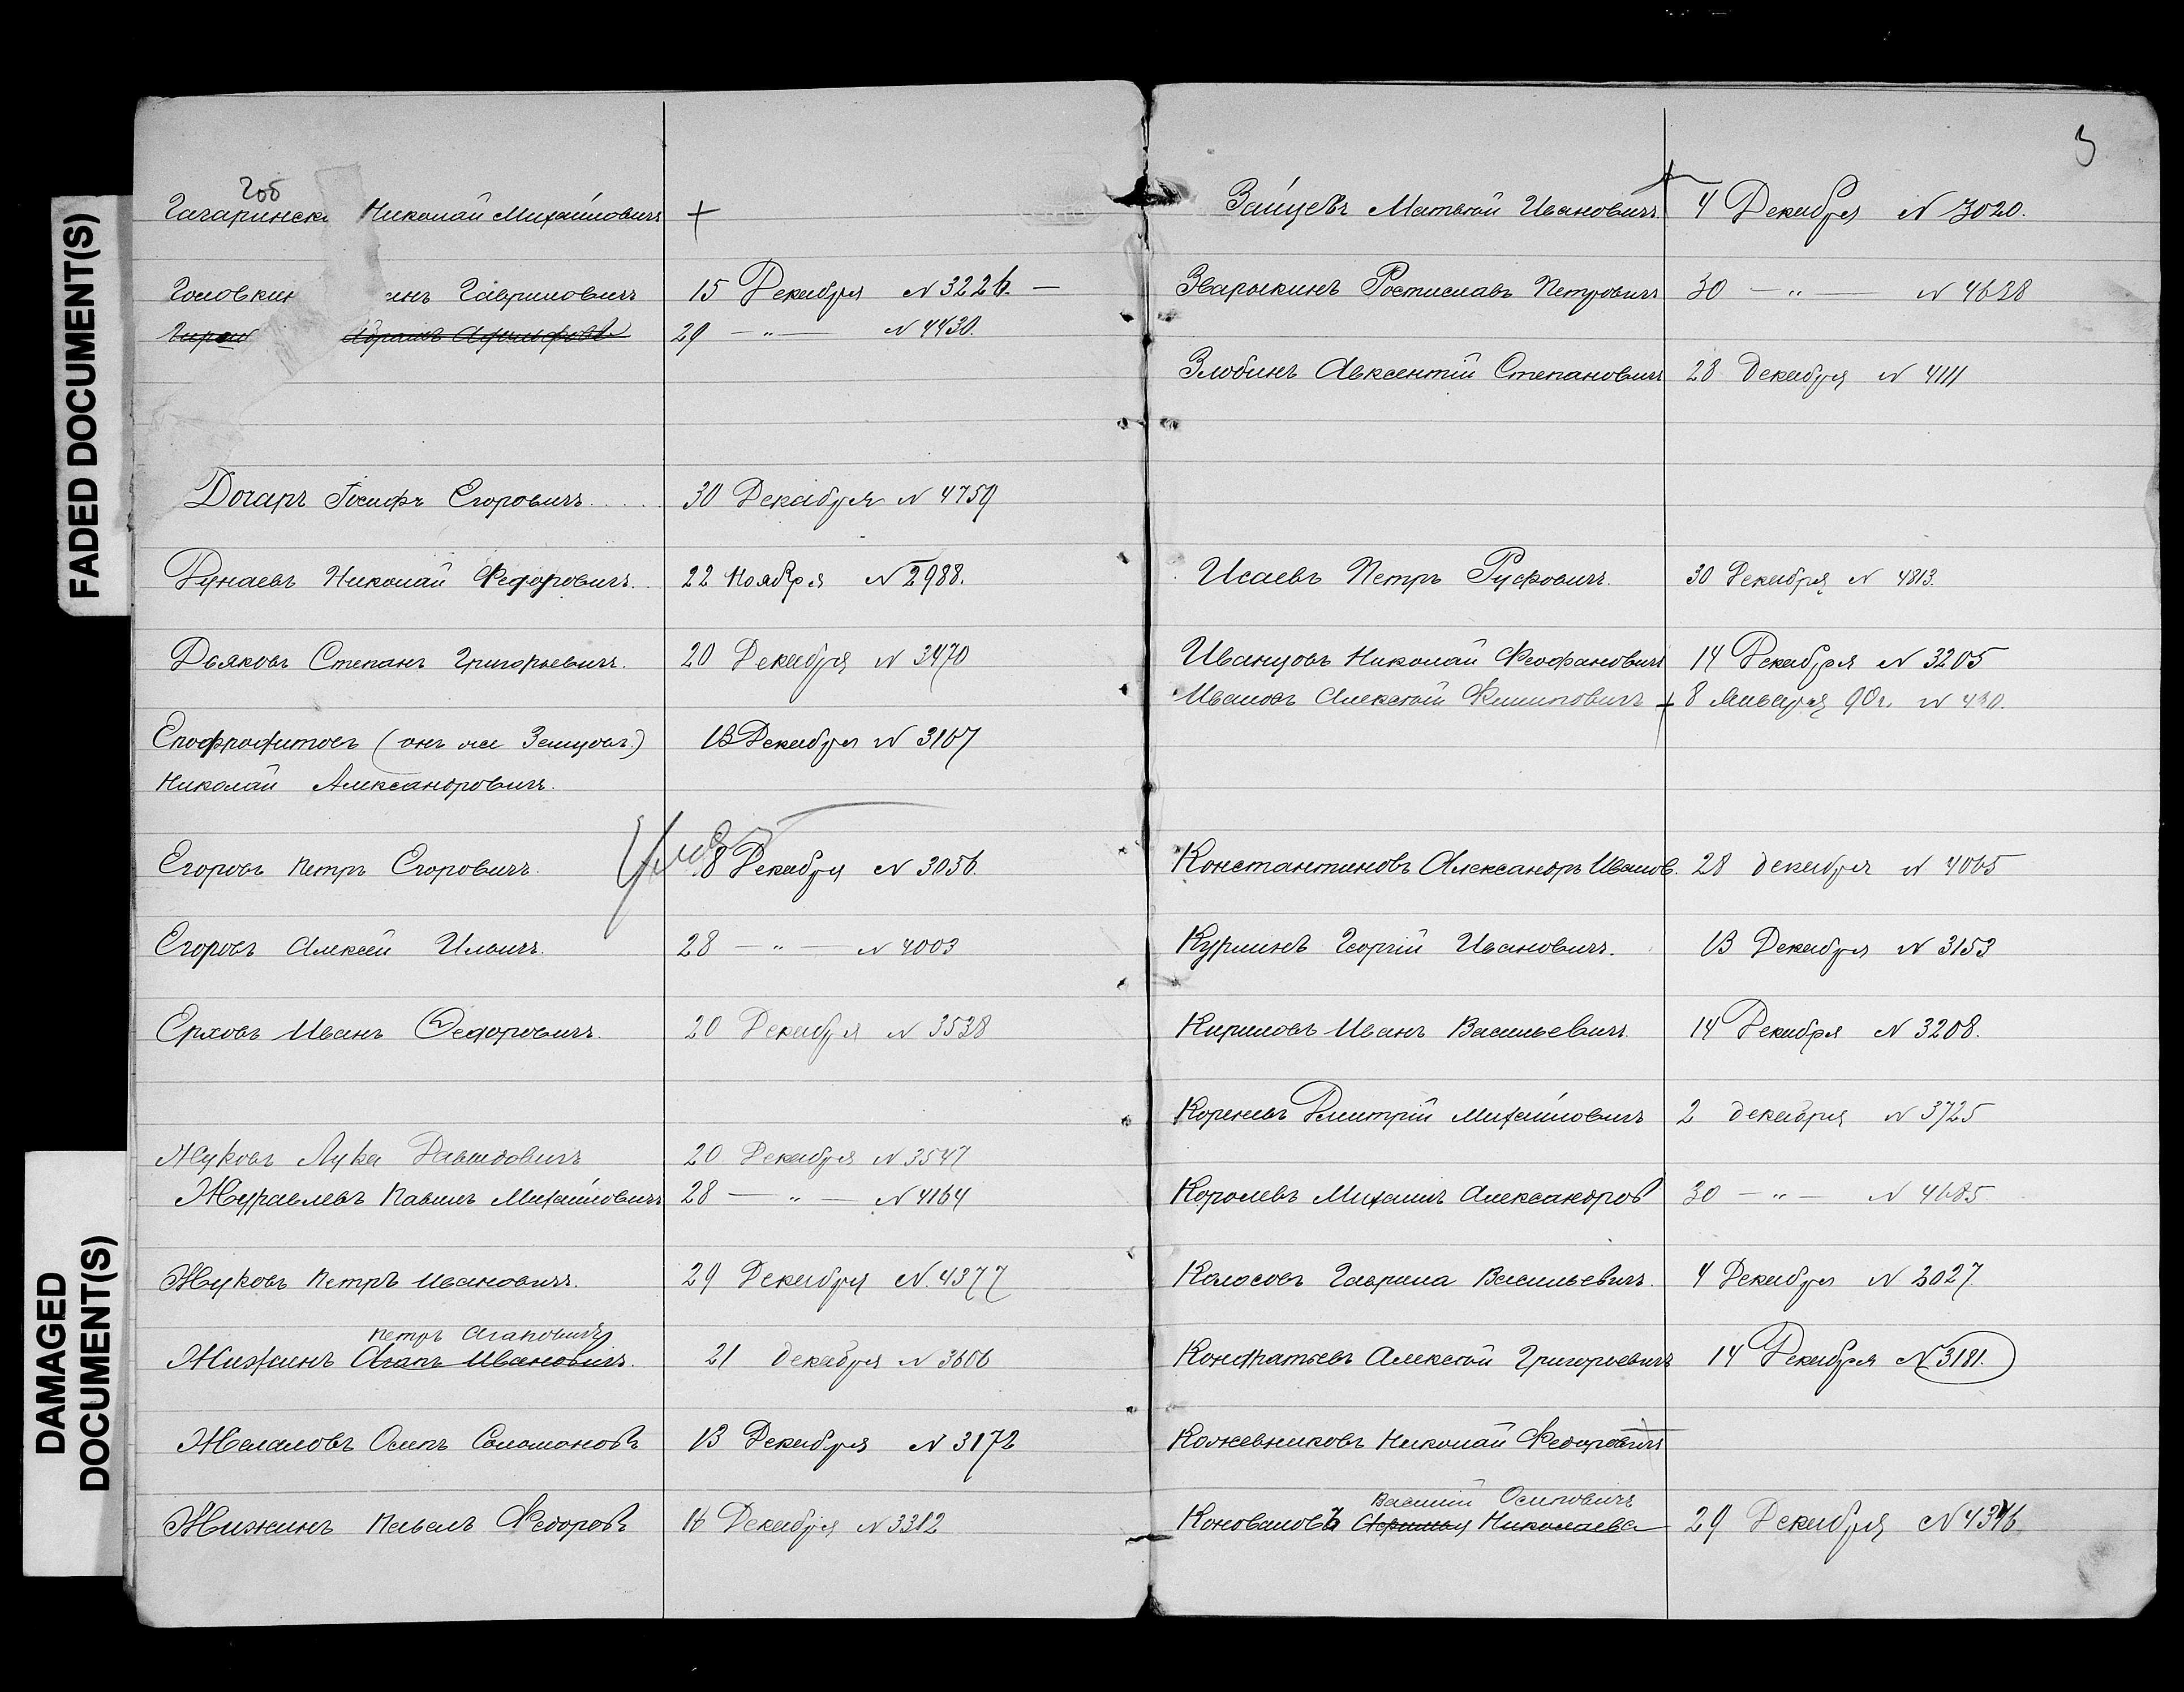 FADED DOCUMENT(S)
DAMAGED DOCUMENT(S)
Гагаринск Николай Михайловичъ +
Головкин инъ Гавриловичъ 15 Декабря N 3226. —
29 —„— N 4430.
Догаръ Іосифъ Егоровичъ..... 30 Декабря N 4759
Дунаевъ Николай Федоровичъ.. 22 Ноября N 2988.
Дьяковъ Степанъ Григорьевичъ. 20 Декабря N 3470
Епафродитовъ (онъ же Земцовъ) 13 Декабря N 3167
Николай Александровичъ.
Егоровъ Петръ Егоровичъ. 8 Декабря N 3056.
Егоровъ Алексѣй Ильичъ. 28 —„— N 4003
Ерховъ Иванъ Ѳедоровичъ. 20 Декабря N 3538
Жуковъ Лука Давыдовичъ 20 Декабря N 3547
Журавлевъ Павелъ Михайловичъ 28 —„— N 4164
Жуковъ Петръ Ивановичъ. 29 Декабря N. 4377
Петръ Агаповичъ
Жихинъ Агапъ Ивановичъ. 21 декабря N 3606
Желаловъ Осипъ Соломоновъ 13 Декабря N 3172
Жижинъ Павелъ Федоровъ 16 Декабря N 3312
3
Зайцевъ Матвѣй Ивановичъ. 4 Декабря N 3020.
Зварыкинъ Ростиславъ Петровичъ 30 —„— N 4638
Злобинъ Авксентій Степановичъ 28 Декабря N 4111
Исаевъ Петръ Руфовичъ. 30 Декабря N 4813.
Иванцовъ Николай Феофановичъ 14 Декабря N 3205
Ивановъ Алексѣй Филиповичъ + 8 Января 90г. N 430.
Константиновъ Александръ Иванов. 28 декабря N 4065
Курлинъ Георгій Ивановичъ. 13 Декабря N 3153
Кириловъ Иванъ Васильевичъ. 14 Декабря N 3208.
Кореневъ Дмитрій Михайловичъ 2 декабря N 3725
Королевъ Михаилъ Александров 30 —„— N 4685
Колосовъ Гаврила Васильевичъ. 4 Декабря N 3027
Кондратьевъ Алексѣй Григорьевичъ 14 Декабря N 3181.
Кожевниковъ Николай Федоровичъ
Василій Осиповичъ
Коноваловъ Николаева 29 Декабря N 4346